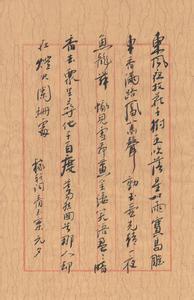 東風夜放花千樹更吹落星如雨寶馬雕
車香滿路鳳簫聲動玉壺光轉一夜
魚龍舞蛾兒雪柳黃金縷笑語盈盈暗
香去眾里尋他千百度驀然回首那人却
在燈火闌珊處 稼軒詞青玉案元夕